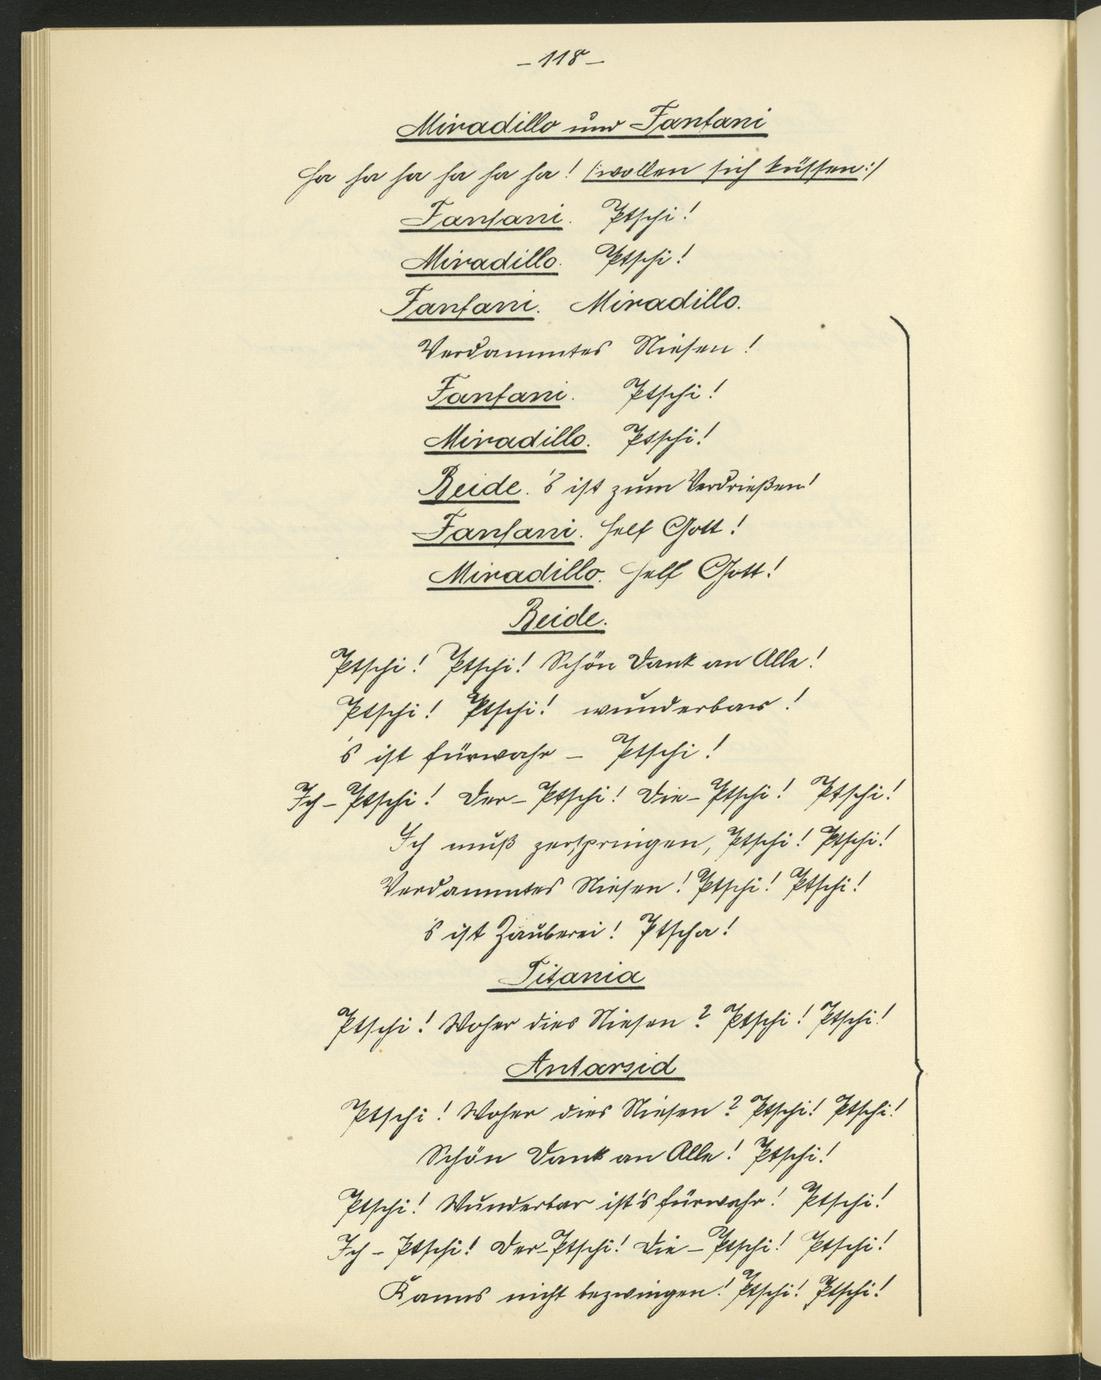 – 118 –
Miradillo und Fanfani
Ha ha ha ha ha ha! /:wollen sich küssen:/
Fanfani. Ptschi!
Miradillo. Ptschi!
Fanfani. Miradillo.
Verdammtes Niesen!
Fanfani. Ptschi!
Miradillo. Ptschi!
Beide. 's ist zum Verdrießen!
Fanfani. Helf Gott!
Miradillo. Helf Gott!
Beide.
Ptschi! Ptschi! Schön Dank an Alle!
Ptschi! Ptschi! wunderbar!
's ist fürwahr – Ptschi!
Ich – Ptschi! Der – Ptschi! Die – Ptschi! Ptschi!
Ich muß zerspringen, Ptschi! Ptschi!
Verdammtes Niesen! Ptschi! Ptschi!
's ist Zauberei! Ptscha!
Titania
Ptschi! Woher dies Niesen? Ptschi! Ptschi!
Antarsid
Ptschi! Woher dies Niesen? Ptschi! Ptschi!
Schön Dank an Alle! Ptschi!
Ptschi! Wunderbar ist's fürwahr! Ptschi!
Ich – Ptschi! Der – Ptschi! Die – Ptschi! Ptschi!
Kanns nicht bezwingen! Ptschi! Ptschi!